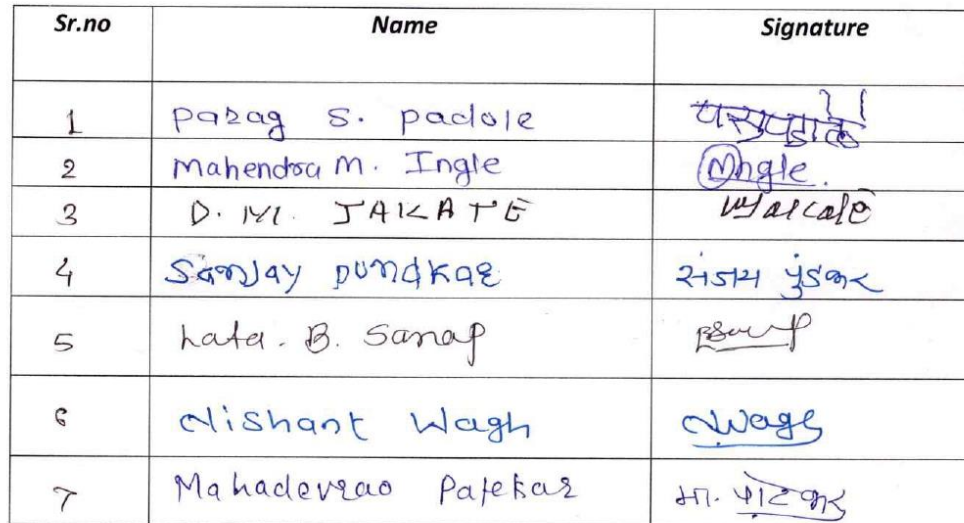 Sr.no Name Signature
1 Parag S. Padole
2 Mahendra M. Ingle Mngle.
3 D. M. JAKATE
4 Sanjay Pundkar संजय पुंडकर
5 Lata. B. Sanap
6 Nishant Wagh NWagh
7 Mahadevrao Patekar मा. पाटेकर